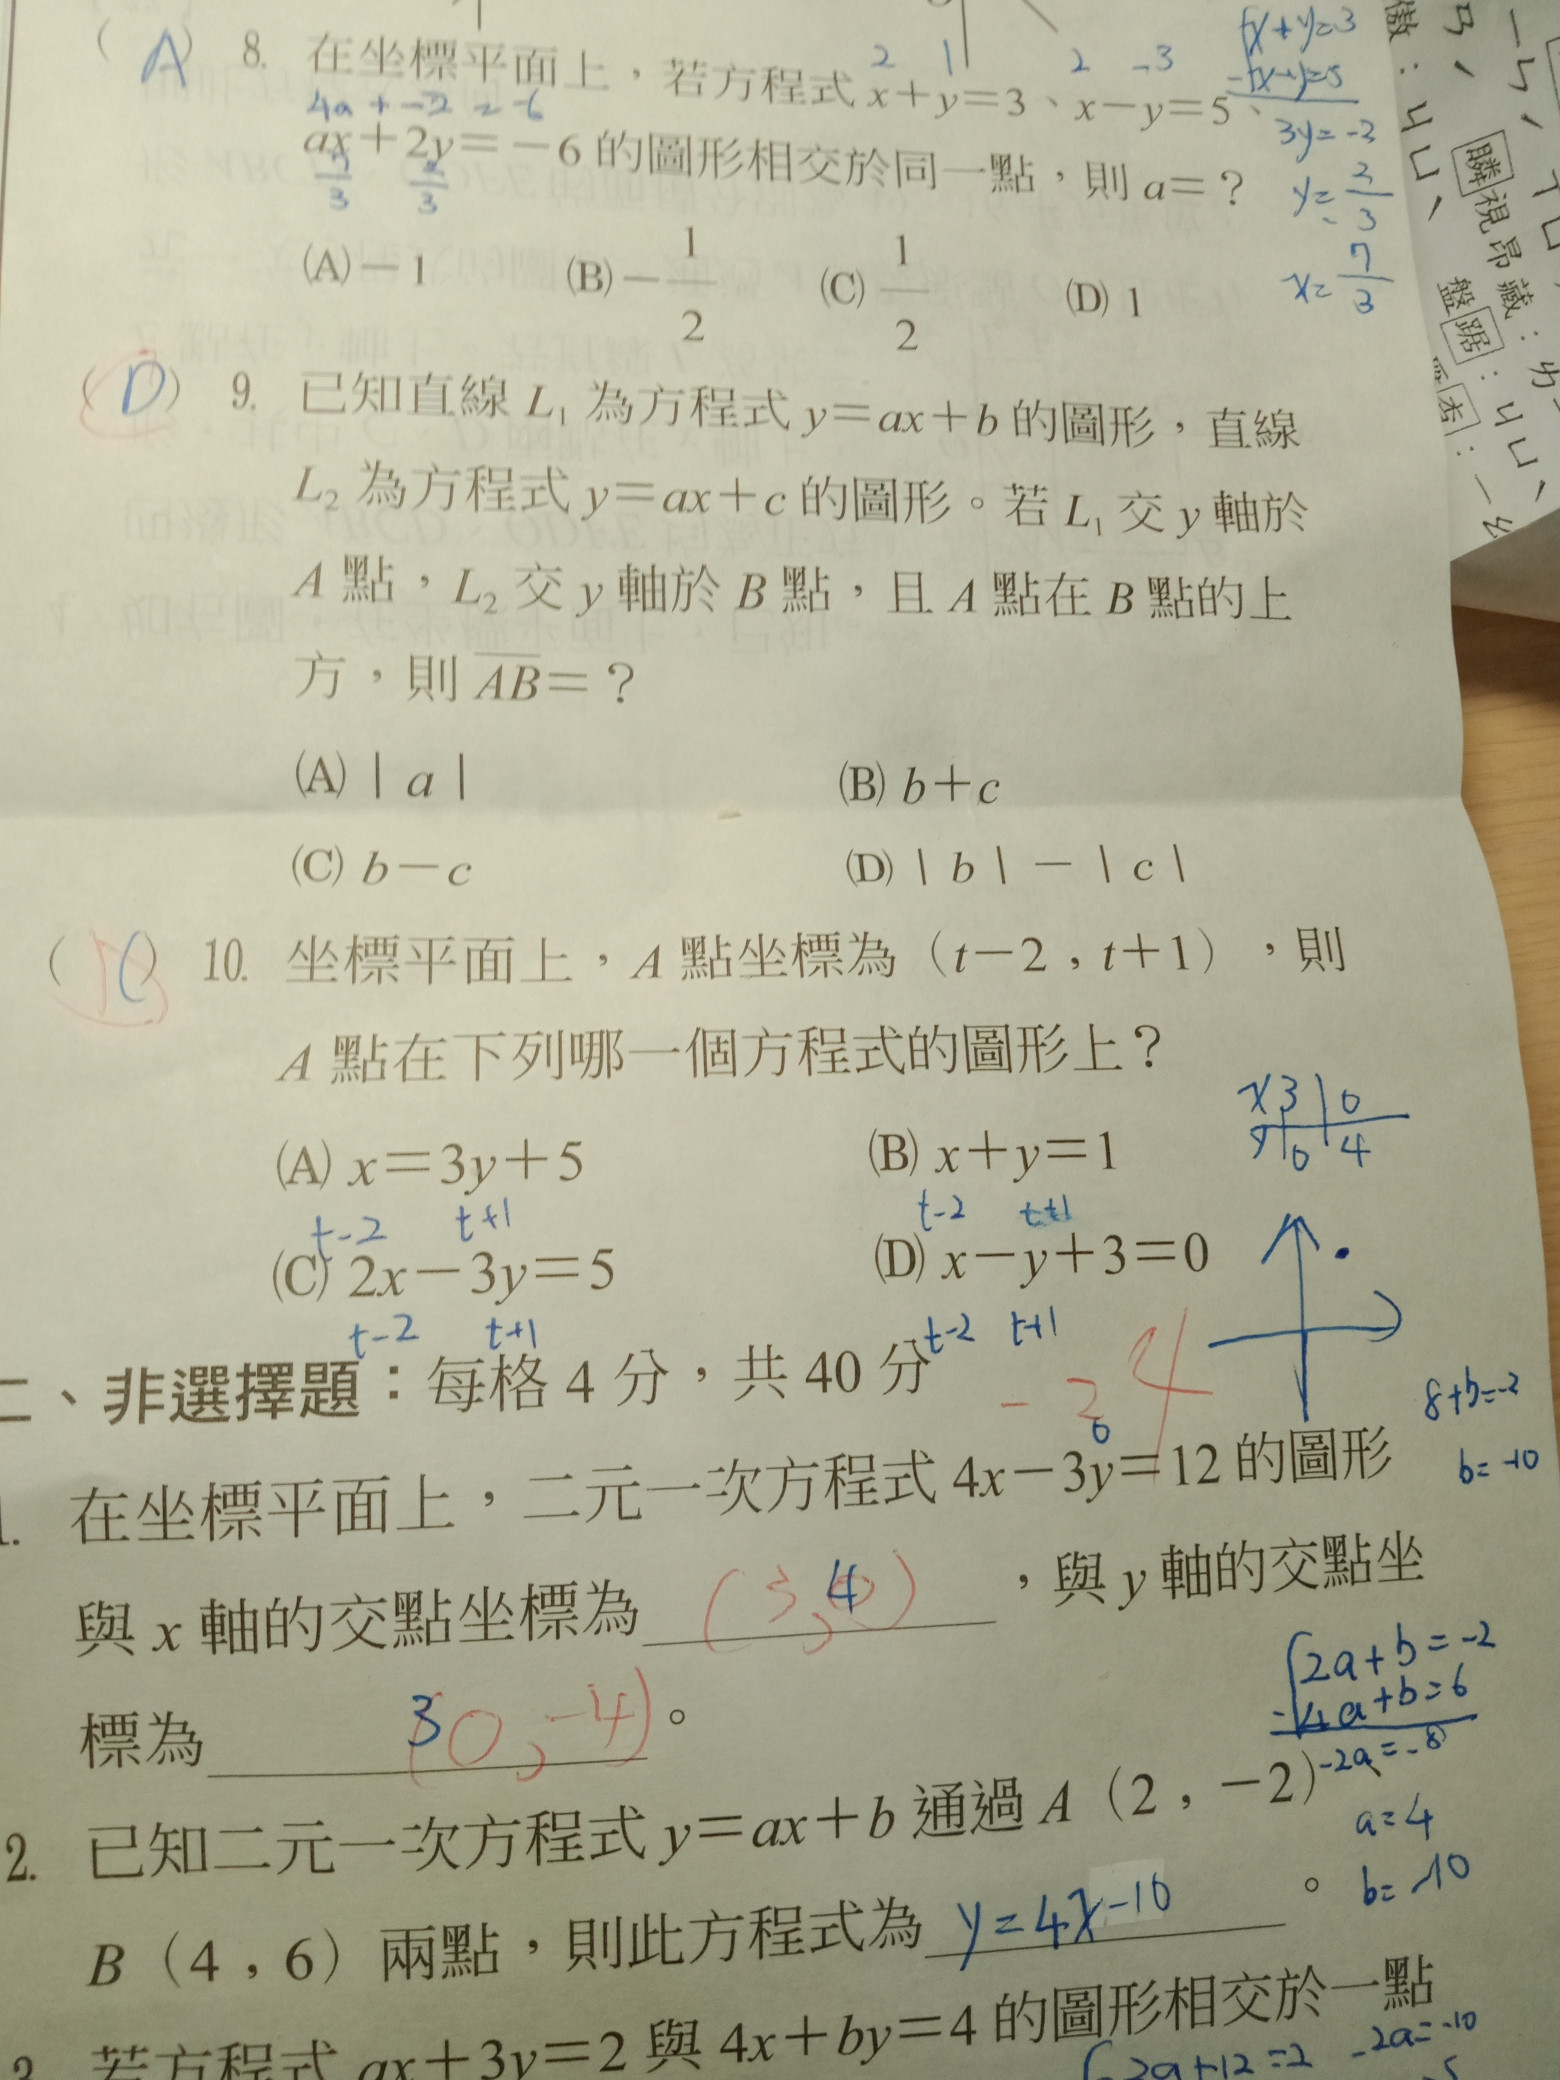 (A) 8. 在坐標平面上，若方程式 x+y=3、x−y=5、
2 1 2 -3
4a + -2 = -6
ax+2y=−6 的圖形相交於同一點，則 a=？
x+y=3
3y=-2
y= 2/3
x= 7/3
(A) −1 (B) −1/2 (C) 1/2 (D) 1
(D) 9. 已知直線 L₁ 為方程式 y=ax+b 的圖形，直線
L₂ 為方程式 y=ax+c 的圖形。若 L₁ 交 y 軸於
A 點，L₂ 交 y 軸於 B 點，且 A 點在 B 點的上
方，則 AB=？
(A)｜a｜ (B) b+c
(C) b−c (D)｜b｜−｜c｜
( ) 10. 坐標平面上，A 點坐標為（t−2，t+1），則
A 點在下列哪一個方程式的圖形上？
x 3 0
y 0 4
(A) x=3y+5 (B) x+y=1
t-2 t+1 t-2 t+1
(C) 2x−3y=5 (D) x−y+3=0
t-2 t+1 t-2 t+1
二、非選擇題：每格 4 分，共 40 分
8+b=-2
b=-10
1. 在坐標平面上，二元一次方程式 4x−3y=12 的圖形
與 x 軸的交點坐標為 (3,0) 4，與 y 軸的交點坐
標為 3 (0,-4)。
2a+b=-2
4a+b=6
-2a=-8
a=4
b=-10
2. 已知二元一次方程式 y=ax+b 通過 A（2，−2）
B（4，6）兩點，則此方程式為 y=4x-10。
3. 若方程式 ax+3y=2 與 4x+by=4 的圖形相交於一點
2a+12=2 -2a=-10
視昂藏：
盤踞：ㄐㄩˋ